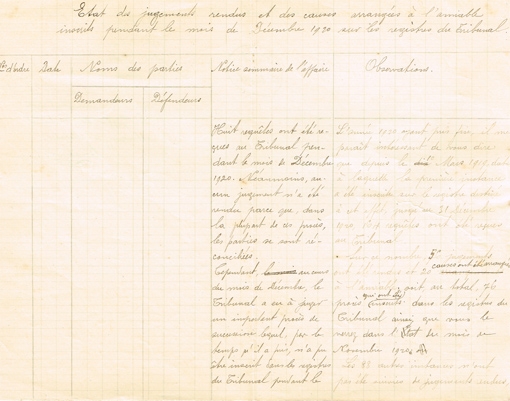 Etat des jugements rendus et des causes arrangées à l'amiable
inscrits pendant le mois de Décembre 1920 sur les registres du Tribunal.
Nos d'ordre Date Noms des parties Notice sommaire de l'affaire Observations.
Demandeurs Défendeurs
Huit requêtes ont été re-
çues au Tribunal pen-
dant le mois de Décembre
1920. Néanmoins, au-
cun jugement n'a été
rendu parce que dans
la plupart de ces procès,
les parties se sont ré-
conciliées.
Cependant, au cours
du mois de Décembre, le
Tribunal a eu à juger
un important procès de
succession lequel, par le
temps qu'il a pris, n'a pu
être inscrit dans les registres
du Tribunal pendant le
L'année 1920 ayant pris fin, il me
paraît intéressant de vous dire
que depuis le Mars 1919, date
à laquelle la première
a été inscrite sur le registre destiné
à cet effet, jusqu'au 31 Décembre
1920, requêtes ont été reçues
au Tribunal.
Sur ce nombre, 5
ont été rendus et 2 causes ont été arrangées
à l'amiable, soit au total, 76
procès qui ont été inscrits dans les registres du
Tribunal ainsi que vous le
verrez dans l'Etat du mois de
Novembre 1920.
Les autres instances n'ont
pas été suivies de jugements